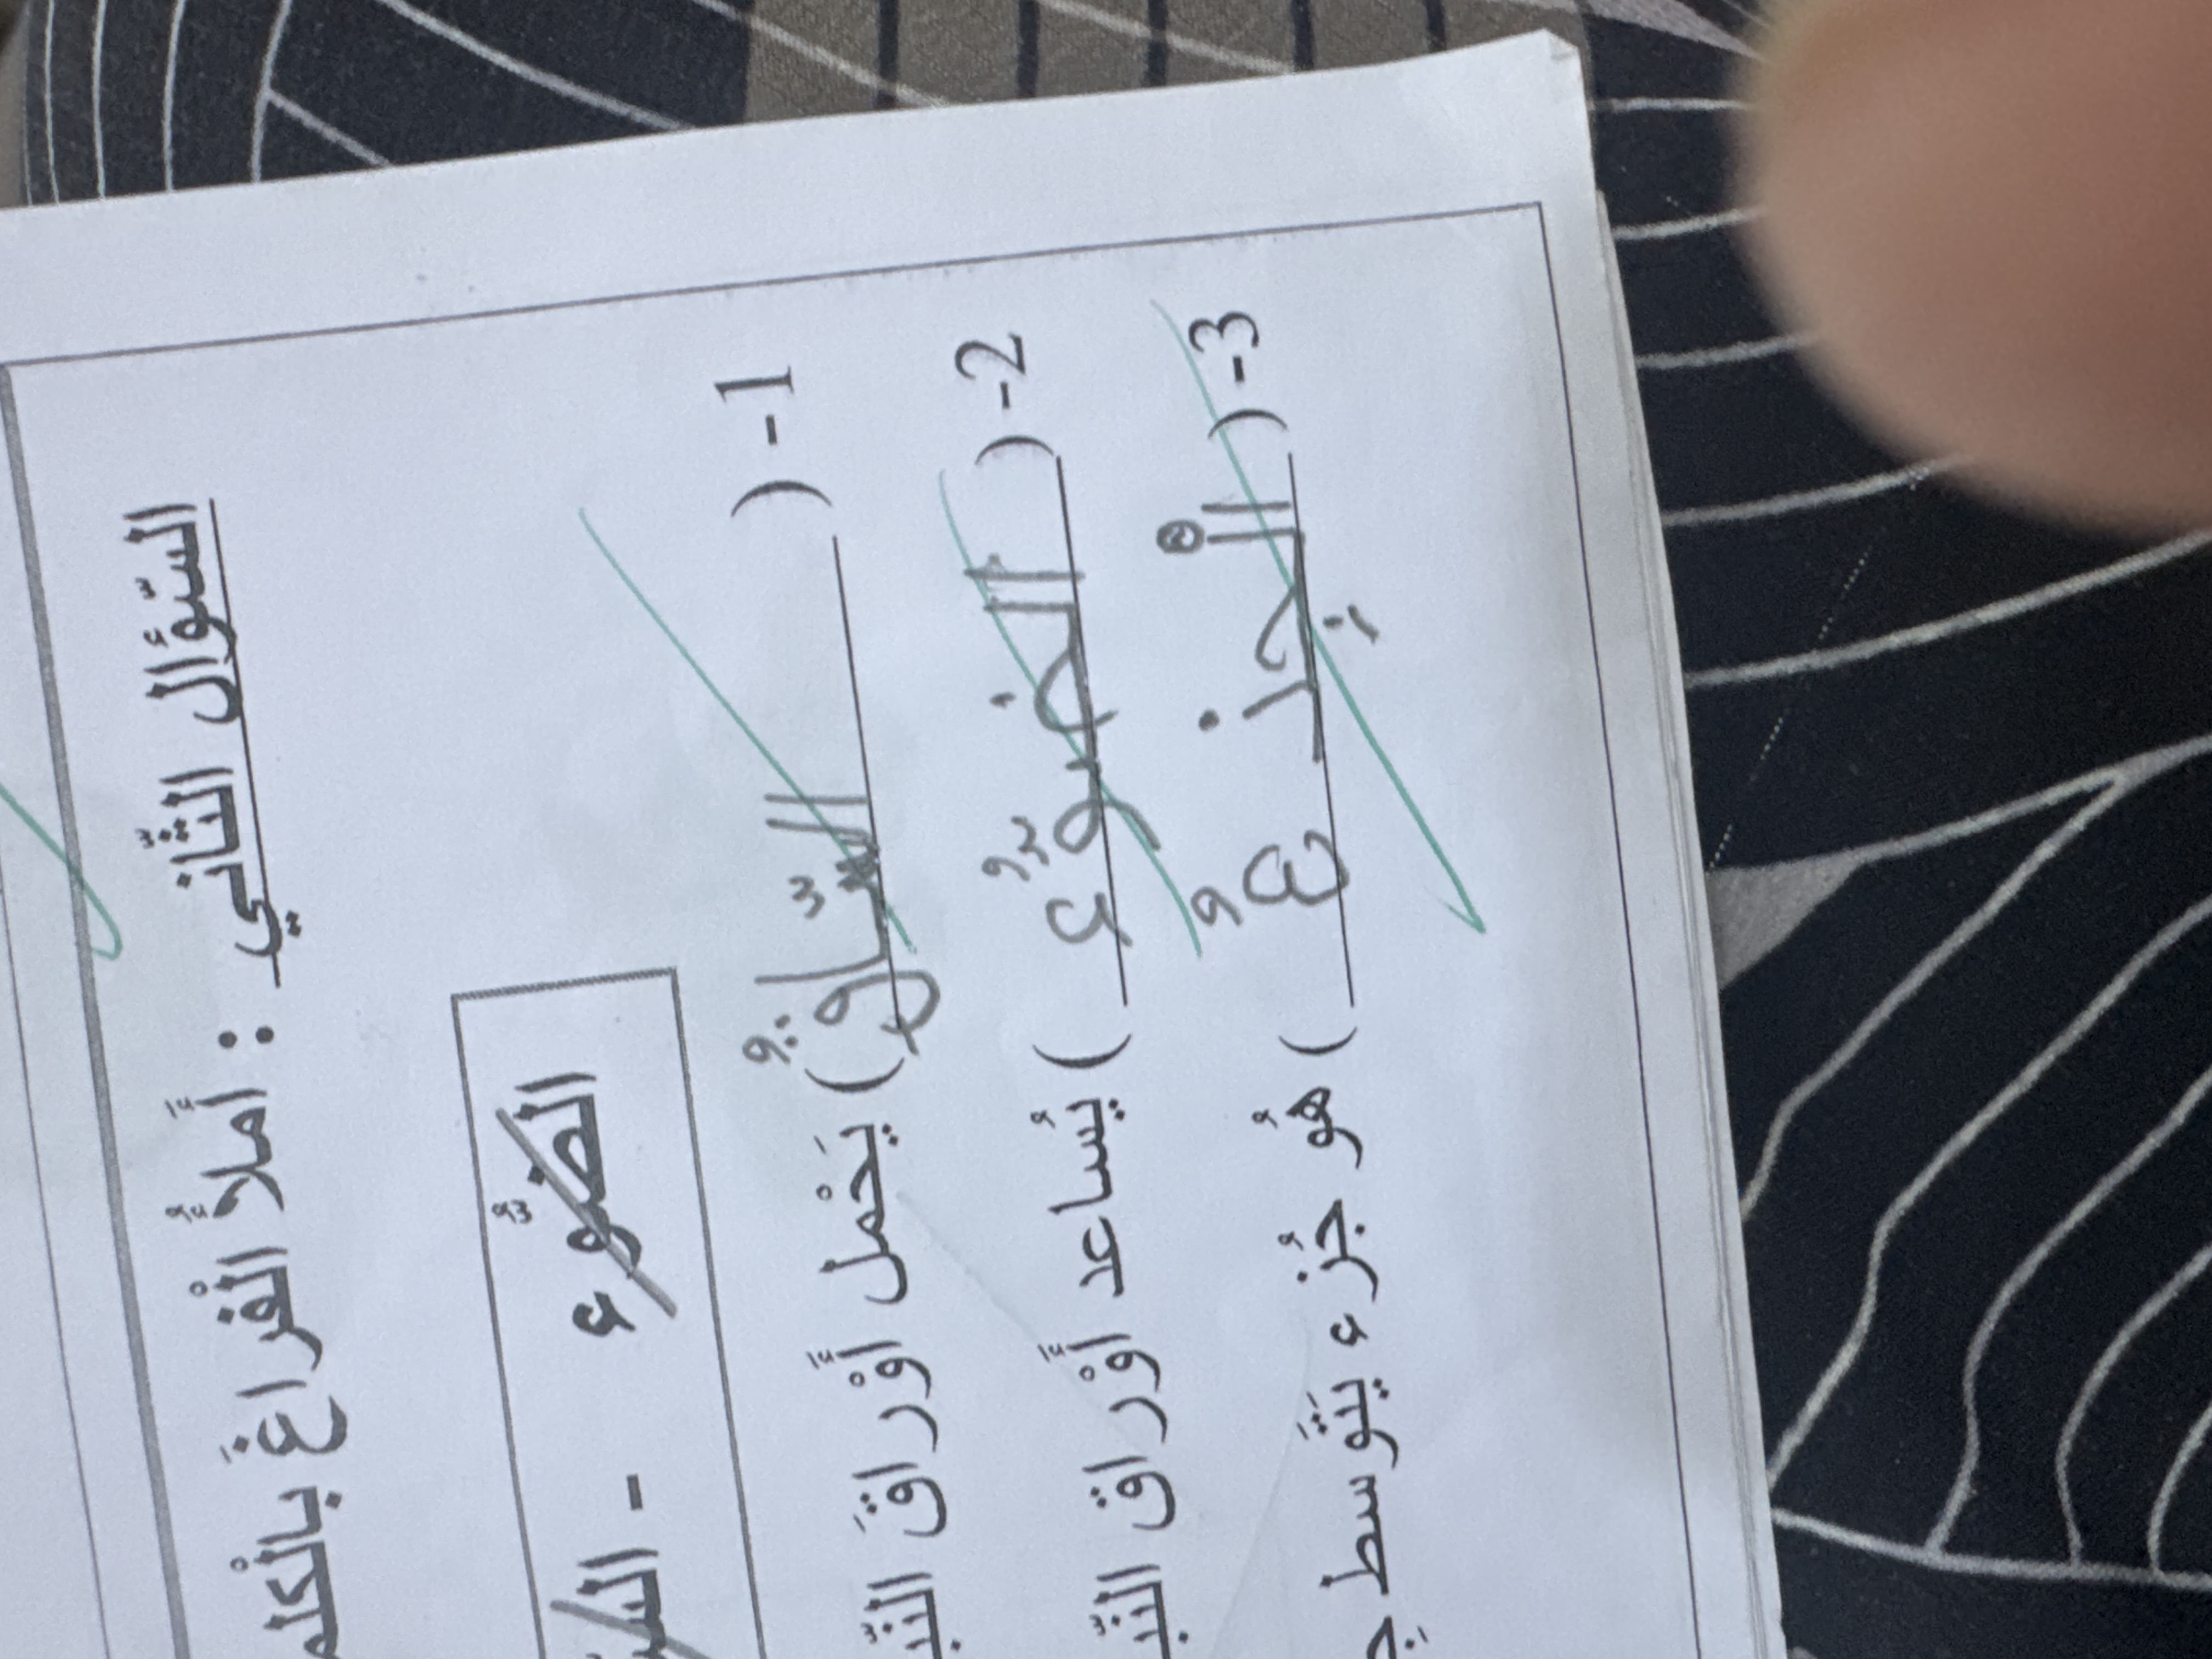 السّؤال الثّاني : أَملأُ الْفراغَ بالْكلم
الضّوُء - السّ
1- ( السّاقُ ) يَحْمل أَوْراقَ النّب
2- ( الضّوُء ) يُساعد أَوْراق النّب
3- ( الْجِذعُ ) هُو جُزء يَتَوسط جِ